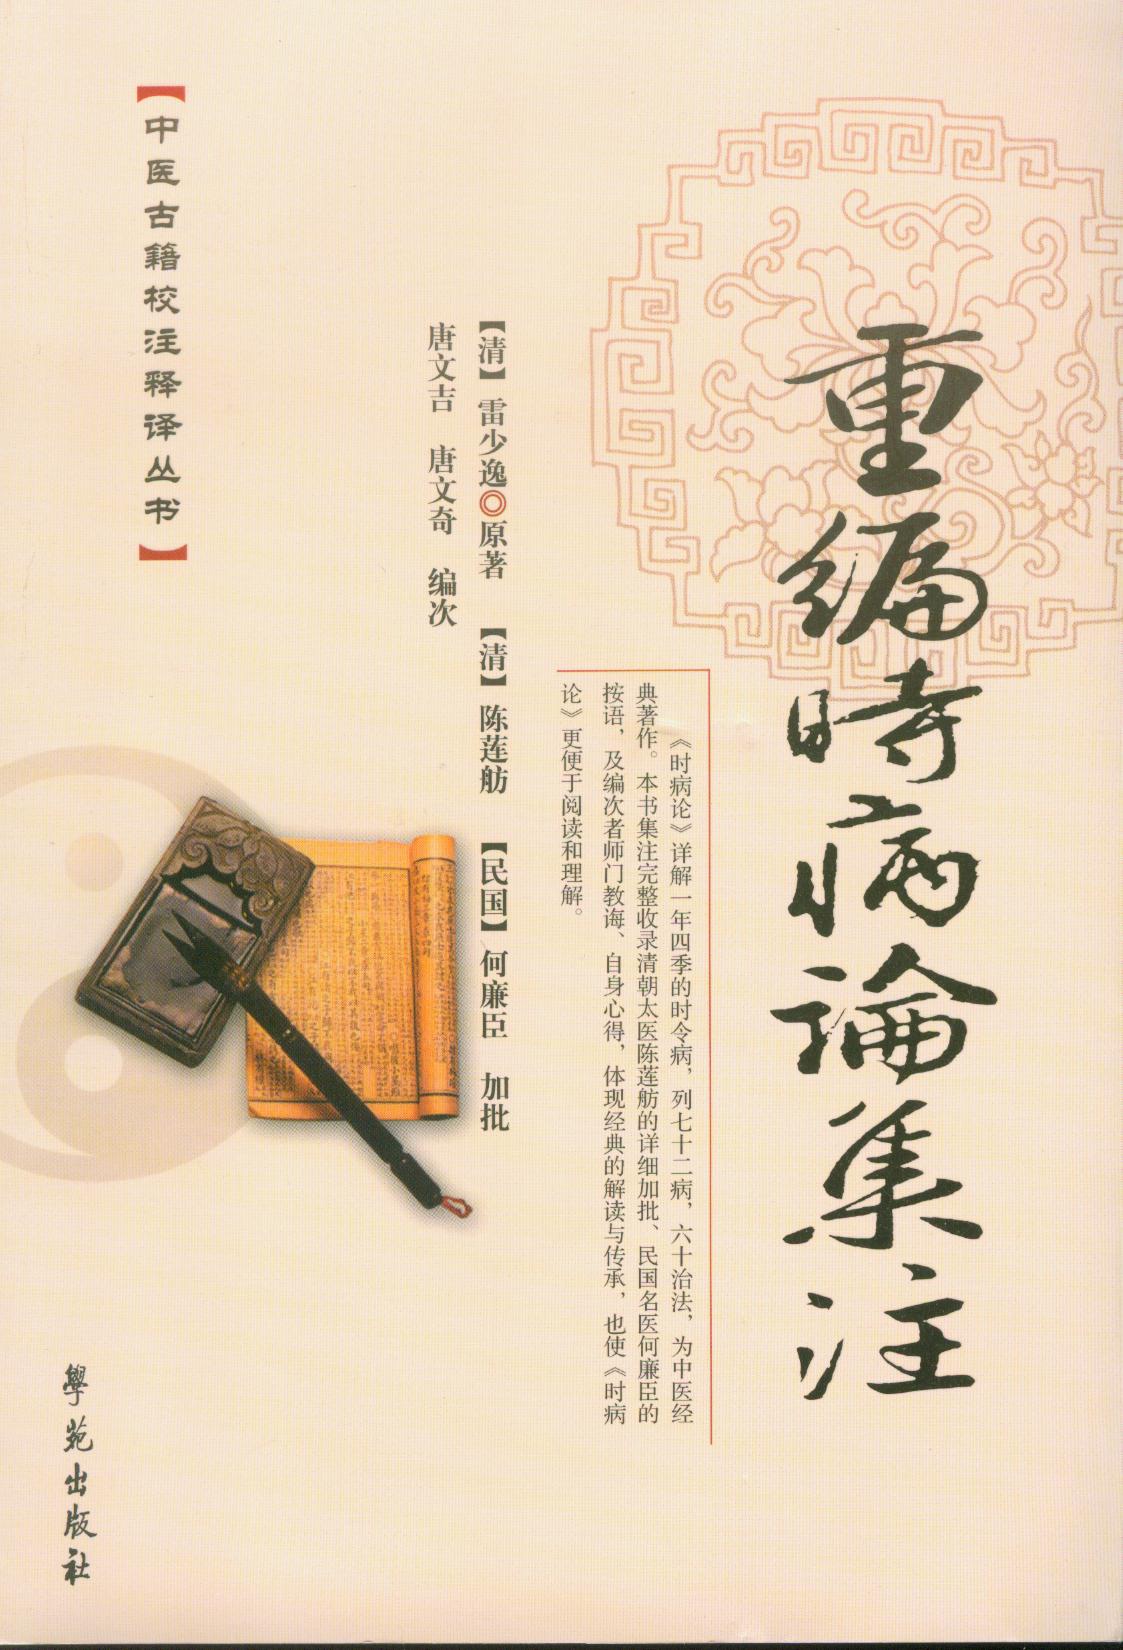 重编時病論集注
《时病论》详解一年四季的时令病，列七十二病，六十治法，为中医经
典著作。本书集注完整收录清朝太医陈莲舫的详细加批、民国名医何廉臣的
按语，及编次者师门教诲、自身心得，体现经典的解读与传承，也使《时病
论》更便于阅读和理解。
【清】雷少逸◎原著 【清】陈莲舫 【民国】何廉臣 加批
唐文吉 唐文奇 编次
【中医古籍校注释译丛书】
學苑出版社